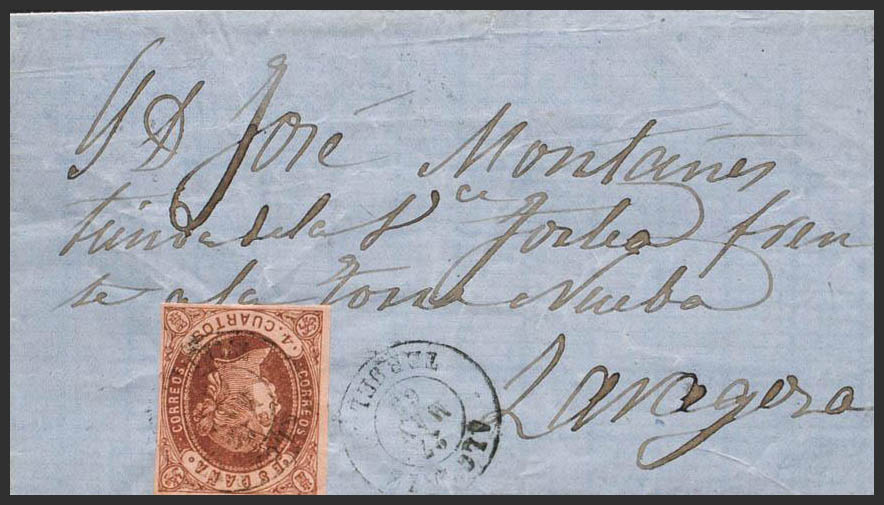 S D José Montañes
tienda de la V.ce Forbea fren
te a la Torre Nueba
Zaragoza
4. CUARTOS.
CORREOS
CORREOS
ESPAÑA
TERUEL
27
63